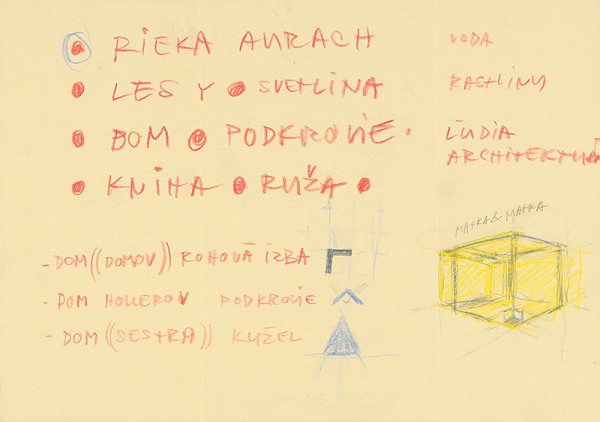 RIEKA AURACH VODA
LESY SVETLINA RASTLINY
DOM PODKROVIE ĽUDIA
ARCHITEKTÚRA
KNIHA RUŽA
MATKA & MATKA
- DOM ((DOMOV)) ROHOVÁ IZBA
- DOM HOLLEROV PODKROVIE
- DOM ((SESTRA)) KUŽEL